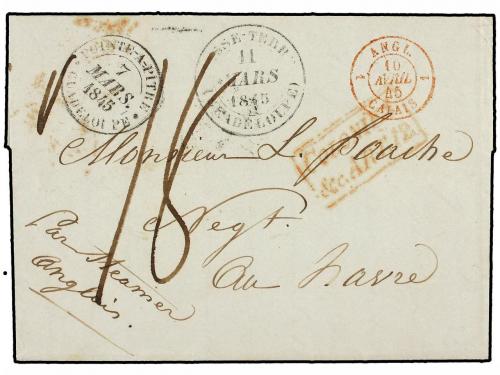 POINTE-A-PITRE
7
MARS.
1845
(GUADELOUPE)
BASSE-TERRE
11
MARS
1845
(GUADELOUPE)
ANGL.
1 10 1
AVRIL
45
CALAIS
&c. &c.
16
Monsieur L.
Negt.
au havre
Par Steamer
Anglais.